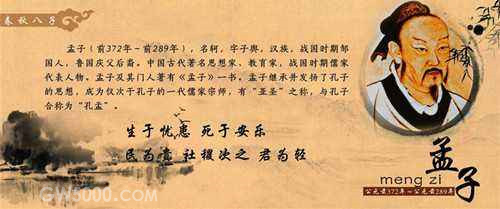 春秋八子
孟子（前372年~前289年），名轲，字子舆，汉族，战国时期邹
国人，鲁国庆父后裔。中国古代著名思想家、教育家，战国时期儒家
代表人物。孟子及其门人著有《孟子》一书。孟子继承并发扬了孔子
的思想，成为仅次于孔子的一代儒家宗师，有“亚圣”之称，与孔子
合称为“孔孟”。
生于忧患 死于安乐
民为贵 社稷次之 君为轻
孟子
meng zi
公元前372年~公元前289年
GW5000.com